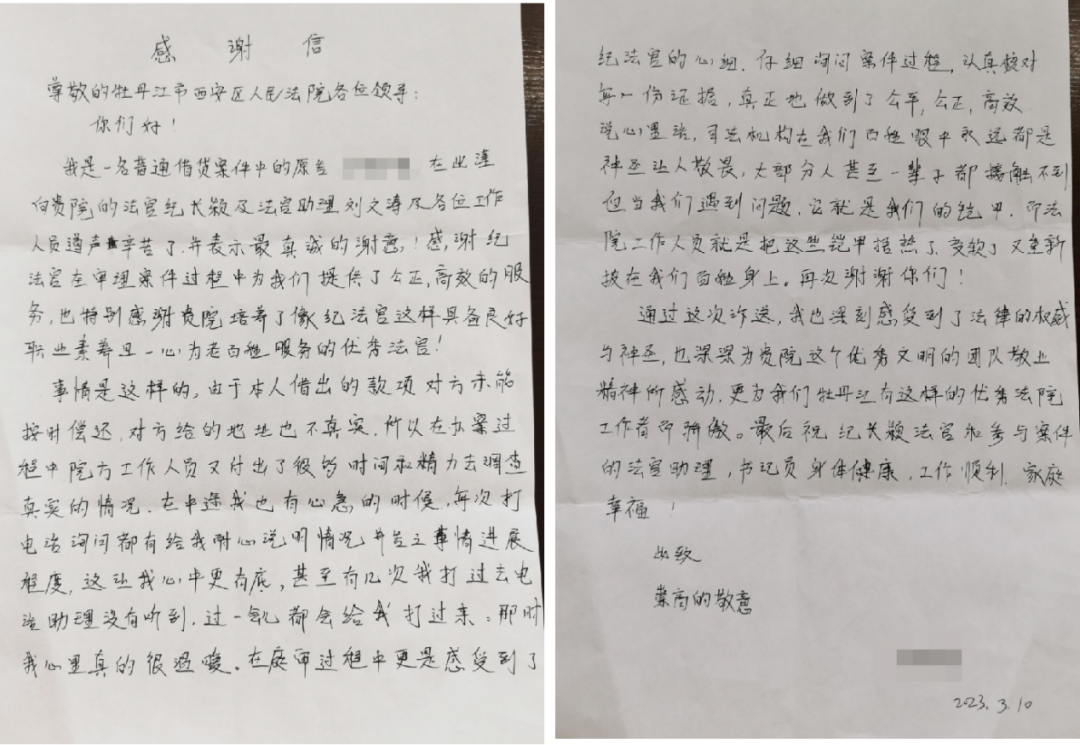 感谢信
尊敬的牡丹江市西安区人民法院各位领导：
你们好！
我是一名普通借贷案件中的原告 在此谨
向贵院的法官纪长颖及法官助理刘文涛及各位工作
人员道声辛苦了并表示最真诚的谢意！感谢纪
法官在审理案件过程中为我们提供了公正，高效的服
务，也特别感谢贵院培养了像纪法官这样具备良好
职业素养且一心为老百姓服务的优秀法官！
事情是这样的，由于本人借出的款项对方未能
按时偿还，对方给的地址也不真实，所以在办案过
程中院方工作人员又付出了很多时间和精力去调查
真实的情况．在中途我也有心急的时候，每次打
电话询问都有给我耐心说明情况并告之事情进展
程度，这让我心中更有底，甚至有几次我打过去电
话助理没有听到，过一会儿都会给我打过来；那时
我心里真的很温暖。在庭审过程中更是感受到了
纪法官的心细．仔细询问案件过程，认真核对
每一份证据，真正地做到了公平，公正，高效
说心里话，司法机构在我们百姓眼中永远都是
神圣让人敬畏，大部分人甚至一辈子都接触不到
但当我们遇到问题，它就是我们的铠甲．而法
院工作人员就是把这些铠甲捂热了，变软了又重新
披在我们百姓身上。再次谢谢你们！
通过这次诉讼，我也深刻感受到了法律的权威
与神圣，也深深为贵院这个优秀文明的团队敬业
精神所感动，更为我们牡丹江有这样的优秀法院
工作者而骄傲。最后祝纪长颖法官和参与案件
的法官助理，书记员身体健康，工作顺利，家庭
幸福！
此致
崇高的敬意
2023.3.10